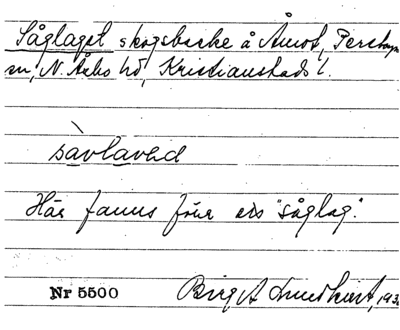 Såglaget skogsbacke å Åmot, Perstorps
sn, N. Åsbo hd, Kristianstads l.
sàvlavəd
Här fanns förr ett "såglag".
Nr 5500 Birgit Lundkvist, 193